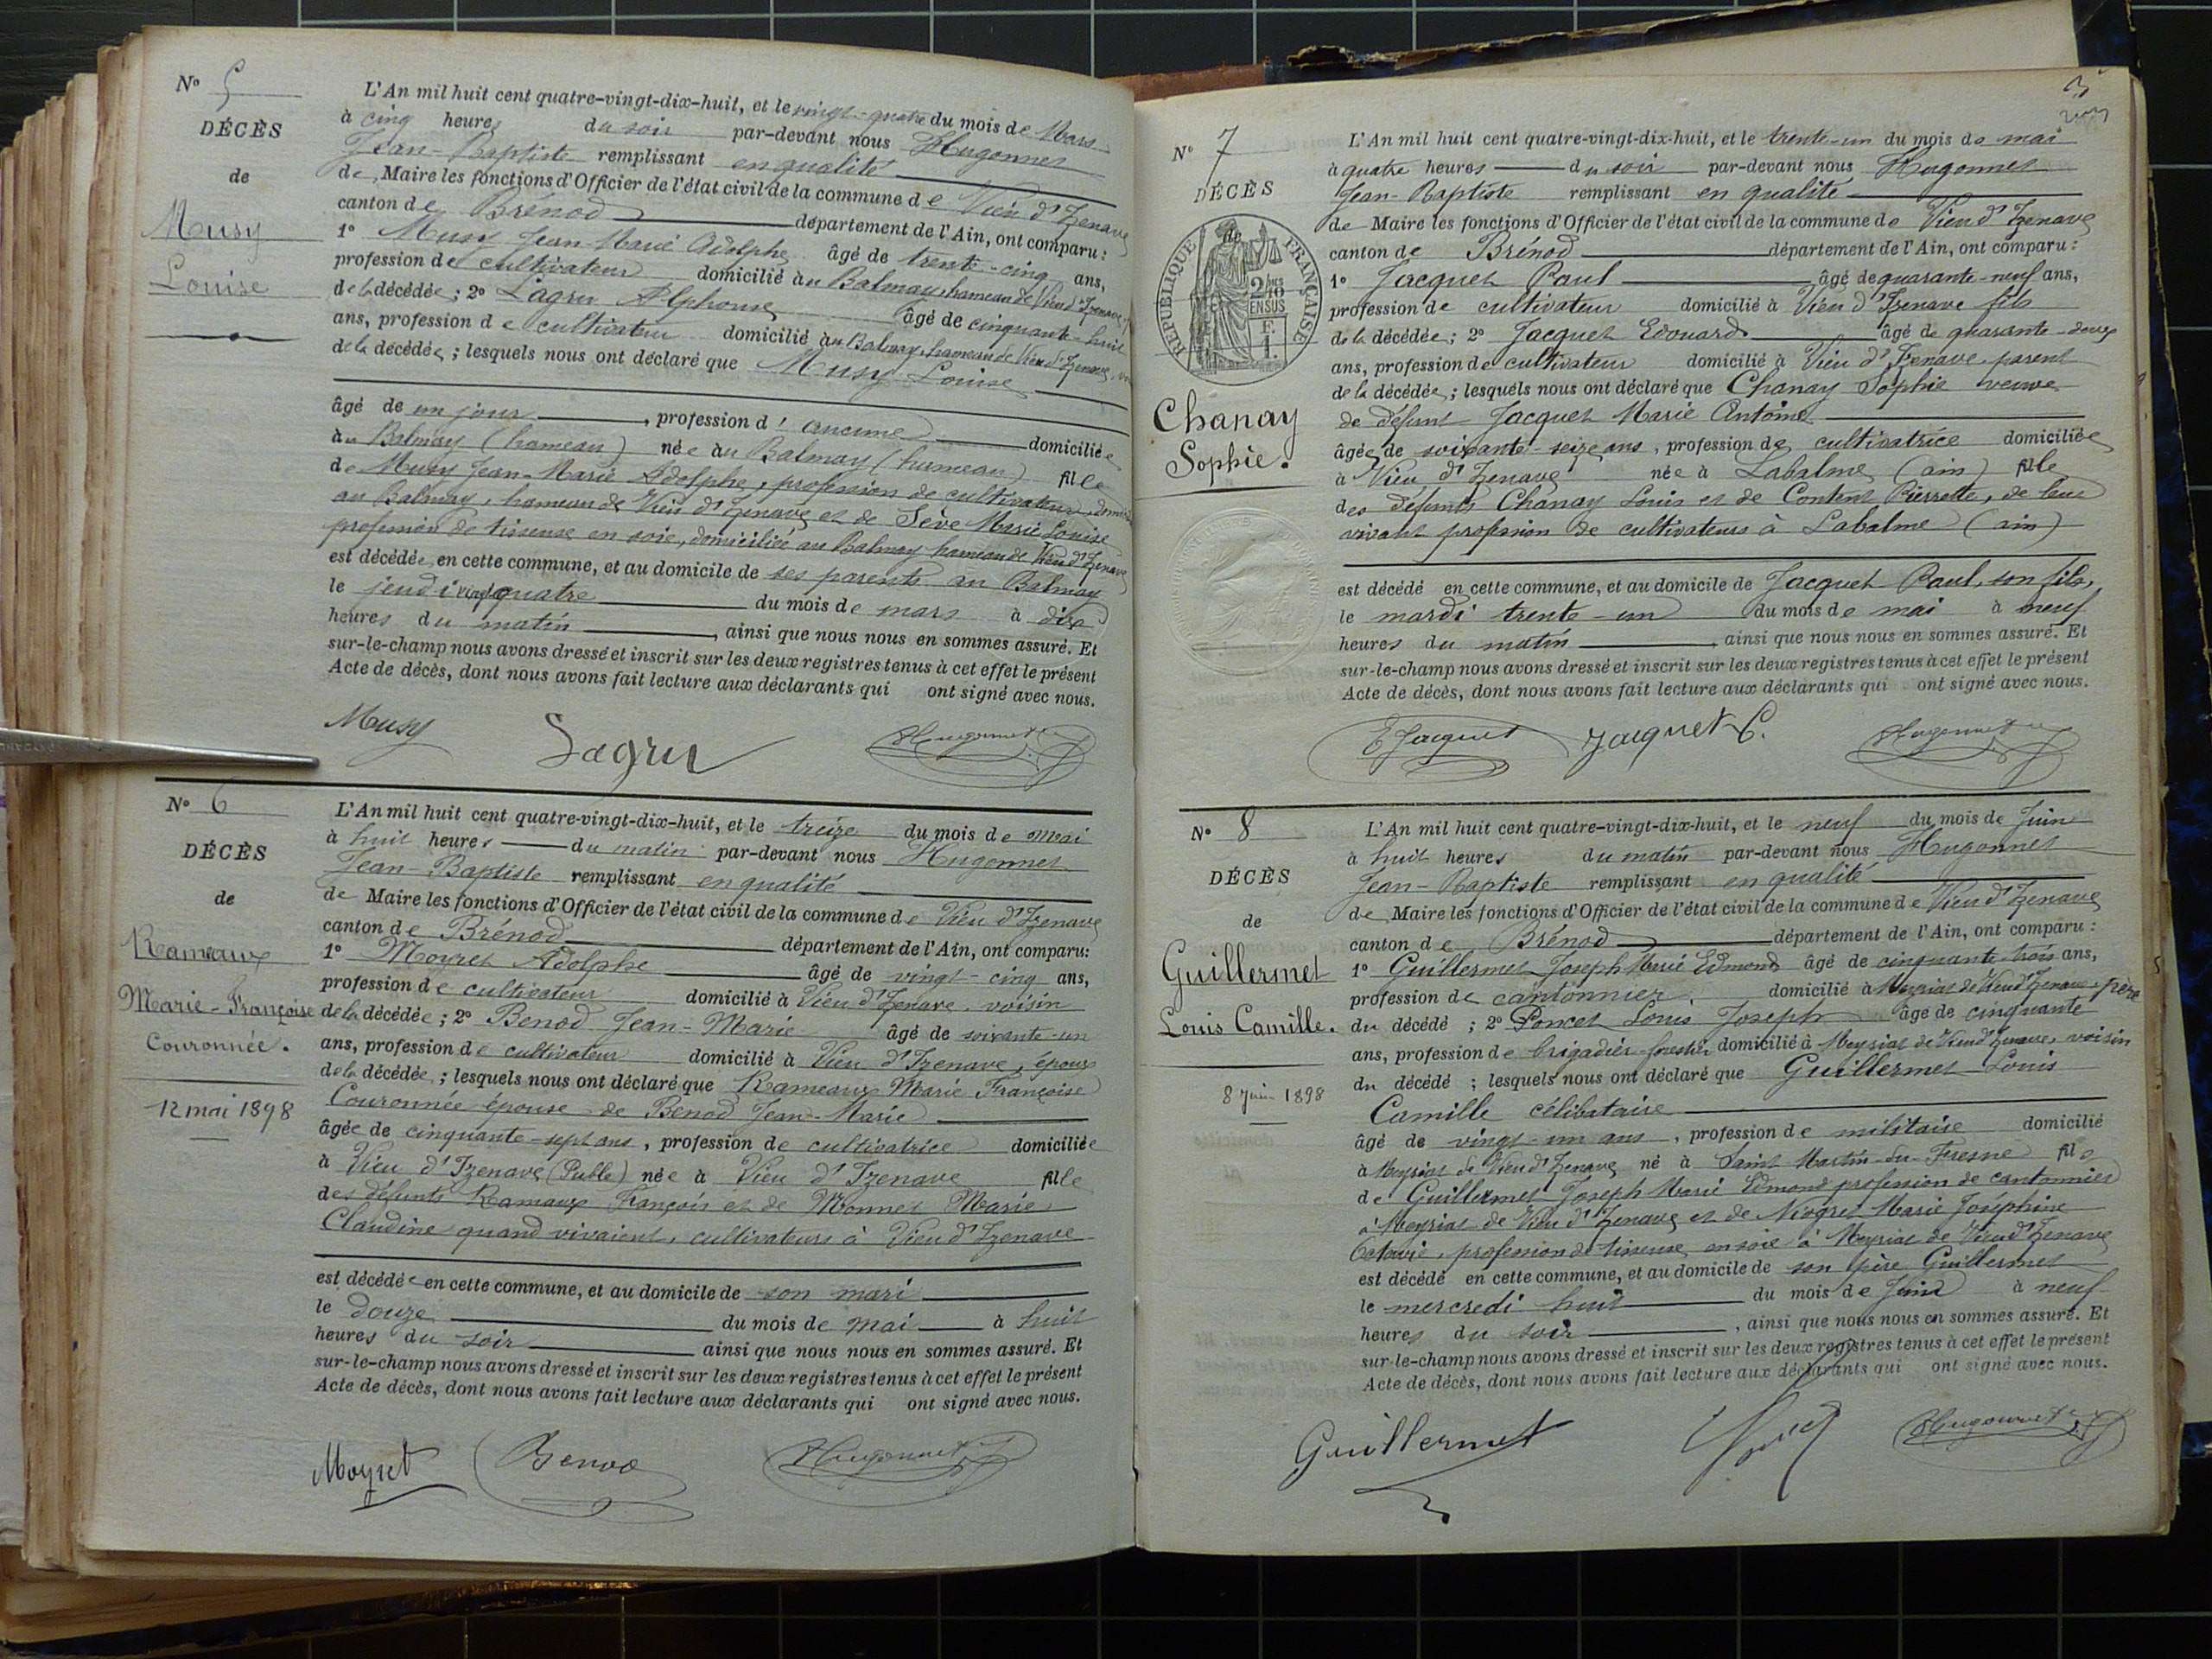 N° 5
DÉCÈS
de
Musy
Louise
L'An mil huit cent quatre-vingt-dix-huit, et le vingt-quatre du mois de Mars
à cinq heures du soir par-devant nous Hugonnet
Jean-Baptiste remplissant en qualité
de Maire les fonctions d'Officier de l'état civil de la commune de Vieu d'Izenave
canton de Brénod département de l'Ain, ont comparu :
1° Musy Jean-Marie Adolphe âgé de trente-cinq ans,
profession de cultivateur domicilié au Balmay, hameau de Vieu d'Izenave
de la décédée ; 2° Lagru Alphonse âgé de cinquante-huit
ans, profession de cultivateur domicilié au Balmay, hameau de Vieu d'Izenave
de la décédée ; lesquels nous ont déclaré que Musy Louise
âgé de un jour, profession d'aucune domiciliée
au Balmay (hameau) née au Balmay (hameau) fille
de Musy Jean-Marie Adolphe, profession de cultivateur
au Balmay, hameau de Vieu d'Izenave et de Sève Marie Louise
profession de tisseuse en soie, domiciliée au Balmay hameau de Vieu d'Izenave
est décédée en cette commune, et au domicile de ses parents au Balmay
le jeudi vingt quatre du mois de mars à dix
heures du matin, ainsi que nous nous en sommes assuré. Et
sur-le-champ nous avons dressé et inscrit sur les deux registres tenus à cet effet le présent
Acte de décès, dont nous avons fait lecture aux déclarants qui ont signé avec nous.
Musy Lagru Hugonnet
N° 6
DÉCÈS
de
Rameaux
Marie-Françoise
Couronnée.
12 mai 1898
L'An mil huit cent quatre-vingt-dix-huit, et le treize du mois de mai
à huit heures du matin par-devant nous Hugonnet
Jean-Baptiste remplissant en qualité
de Maire les fonctions d'Officier de l'état civil de la commune de Vieu d'Izenave
canton de Brénod département de l'Ain, ont comparu:
1° Moyret Adolphe âgé de vingt-cinq ans,
profession de cultivateur domicilié à Vieu d'Izenave, voisin
de la décédée ; 2° Benod Jean-Marie âgé de soixante-un
ans, profession de cultivateur domicilié à Vieu d'Izenave, époux
de la décédée ; lesquels nous ont déclaré que Rameaux Marie Françoise
Couronnée épouse de Benod Jean-Marie
âgée de cinquante-sept ans, profession de cultivatrice domiciliée
à Vieu d'Izenave née à Vieu d'Izenave fille
des défunts Rameaux François et de Monnet Marie
Claudine quand vivaient, cultivateurs à Vieu d'Izenave
est décédée en cette commune, et au domicile de son mari
le douze du mois de mai à huit
heures du soir ainsi que nous nous en sommes assuré. Et
sur-le-champ nous avons dressé et inscrit sur les deux registres tenus à cet effet le présent
Acte de décès, dont nous avons fait lecture aux déclarants qui ont signé avec nous.
Moyret Benod Hugonnet
3
N° 7
DÉCÈS
de
RÉPUBLIQUE FRANÇAISE
2/10
EN SUS
Chanay
Sophie.
L'An mil huit cent quatre-vingt-dix-huit, et le trente-un du mois de mai
à quatre heures du soir par-devant nous Hugonnet
Jean-Baptiste remplissant en qualité
de Maire les fonctions d'Officier de l'état civil de la commune de Vieu d'Izenave
canton de Brénod département de l'Ain, ont comparu :
1° Jacquet Paul âgé de quarante-neuf ans,
profession de cultivateur domicilié à Vieu d'Izenave fils
de la décédée ; 2° Jacquet Edouard âgé de quarante-deux
ans, profession de cultivateur domicilié à Vieu d'Izenave parent
de la décédée ; lesquels nous ont déclaré que Chanay Sophie veuve
de défunt Jacquet Marie Antoine
âgée de soixante-seize ans, profession de cultivatrice domiciliée
à Vieu d'Izenave née à Labalme (ain) fille
des défunts Chanay Louis et de Content Pierrette, de leur
vivant profession de cultivateurs à Labalme (ain)
est décédé en cette commune, et au domicile de Jacquet Paul, son fils,
le mardi trente-un du mois de mai à neuf
heures du matin, ainsi que nous nous en sommes assuré. Et
sur-le-champ nous avons dressé et inscrit sur les deux registres tenus à cet effet le présent
Acte de décès, dont nous avons fait lecture aux déclarants qui ont signé avec nous.
E Jacquet Jacquet P. Hugonnet
N° 8
DÉCÈS
de
Guillermet
Louis Camille.
8 Juin 1898
L'An mil huit cent quatre-vingt-dix-huit, et le neuf du mois de Juin
à huit heures du matin par-devant nous Hugonnet
Jean-Baptiste remplissant en qualité
de Maire les fonctions d'Officier de l'état civil de la commune de Vieu d'Izenave
canton de Brénod département de l'Ain, ont comparu :
1° Guillermet Joseph Marie Edmond âgé de cinquante-trois ans,
profession de cantonnier, domicilié à Meyriat de Vieu d'Izenave, père
du décédé ; 2° Poncet Louis Joseph âgé de cinquante
ans, profession de brigadier-forestier domicilié à Meyriat de Vieu d'Izenave, voisin
du décédé ; lesquels nous ont déclaré que Guillermet Louis
Camille célibataire
âgé de vingt-un ans, profession de militaire domicilié
à Meyriat de Vieu d'Izenave né à Saint Martin-du-Fresne fils
de Guillermet Joseph Marie Edmond profession de cantonnier
à Meyriat de Vieu d'Izenave et de Niogret Marie Joséphine
Octavie, profession de tisseuse en soie à Meyriat de Vieu d'Izenave
est décédé en cette commune, et au domicile de son père Guillermet
le mercredi huit du mois de Juin à neuf
heures du soir, ainsi que nous nous en sommes assuré. Et
sur-le-champ nous avons dressé et inscrit sur les deux registres tenus à cet effet le présent
Acte de décès, dont nous avons fait lecture aux déclarants qui ont signé avec nous.
Guillermet Hugonnet